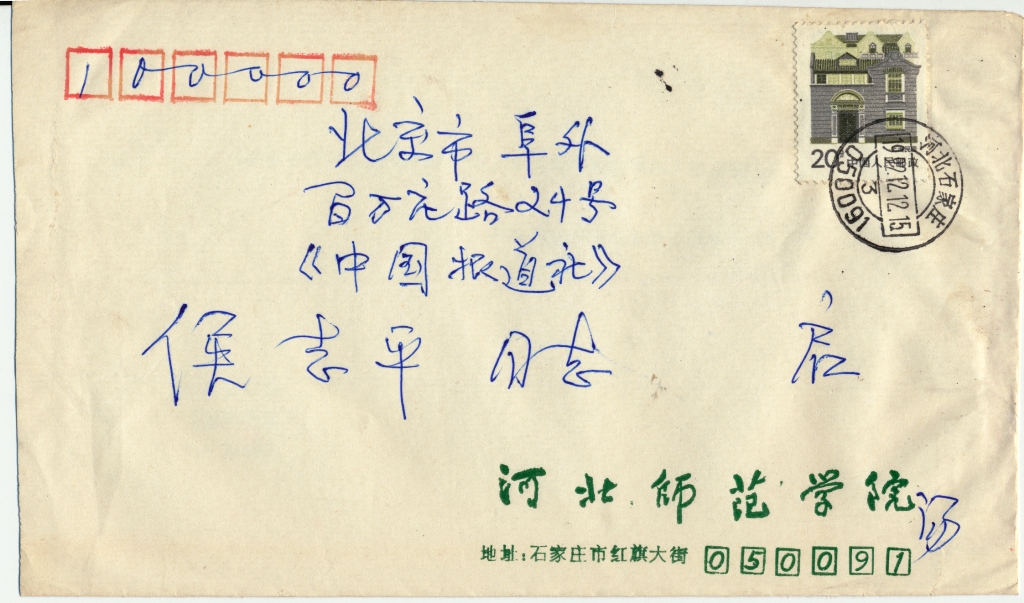 100000
北京市 阜外
百万庄路24号
《中国报道社》
侯志平 同志 启
20分 中国人民邮政
河北石家庄
1992.12.12.15
3
050091
河北师范学院 汤
地址:石家庄市红旗大街 050091